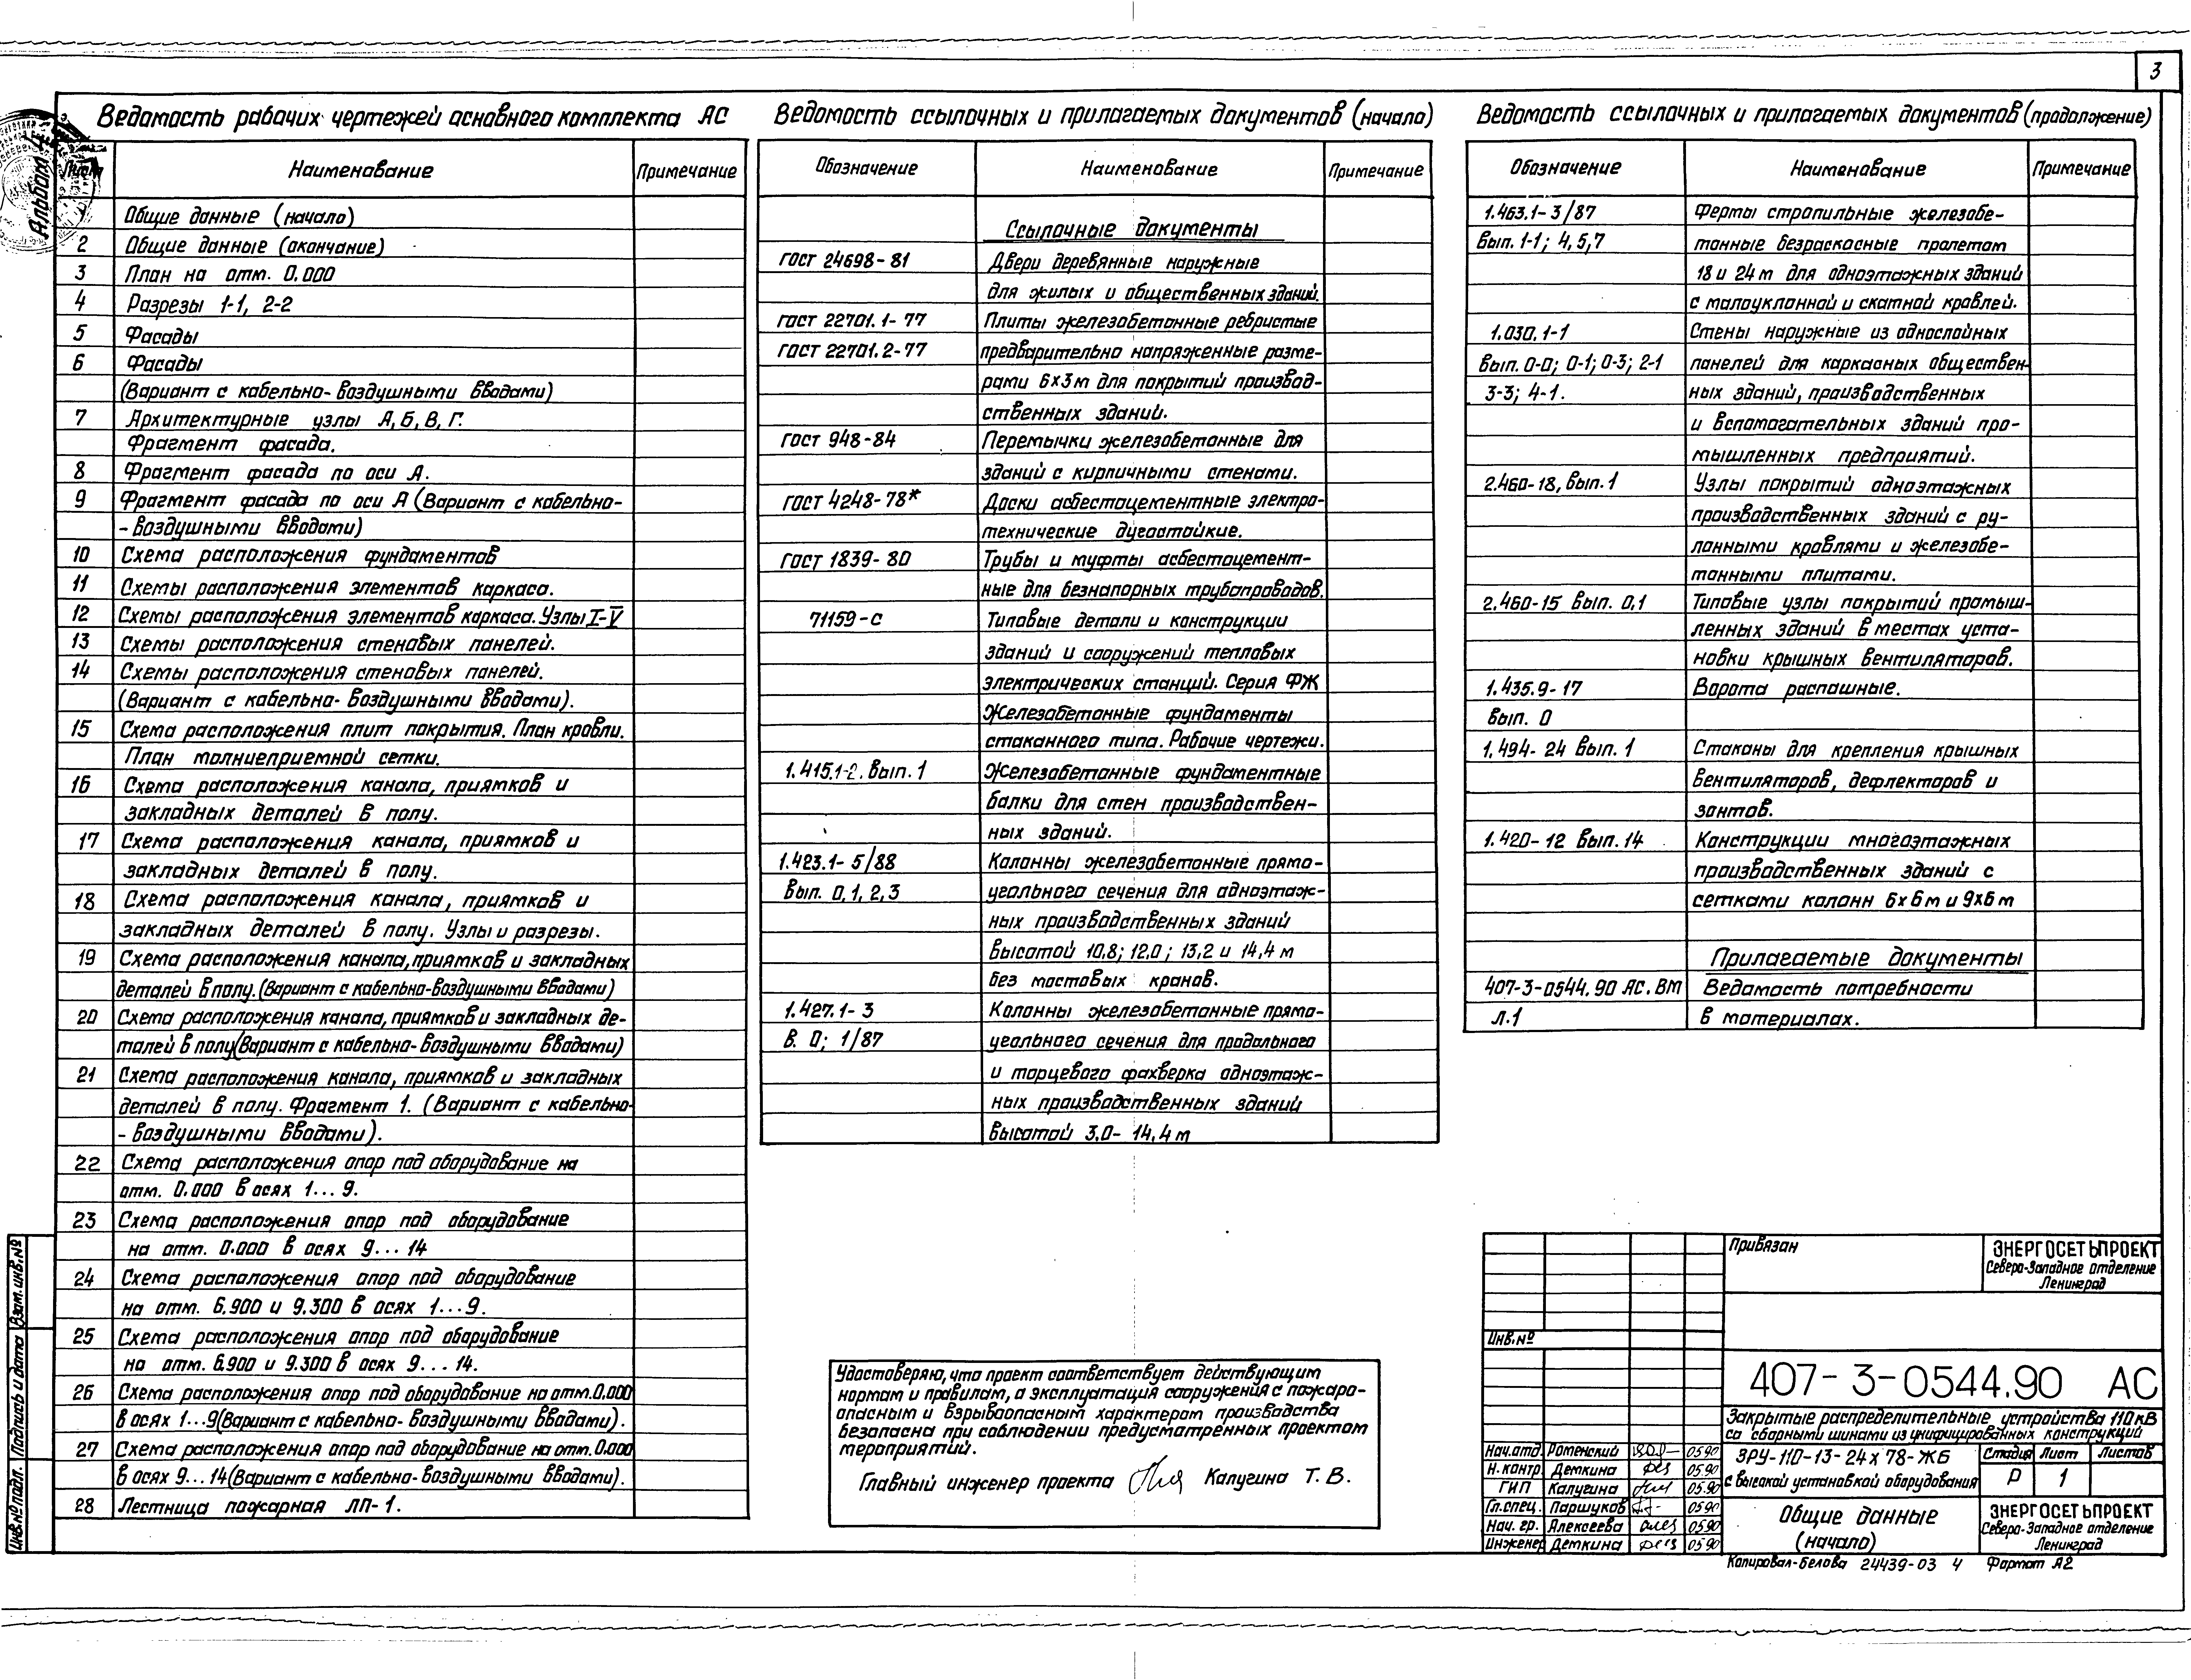 3
Ведомость рабочих чертежей основного комплекта АС
Альбом
Наименование
Примечание
Общие данные (начало)
2 Общие данные (окончание)
3 План на отм. 0.000
4 Разрезы 1-1, 2-2
5 Фасады
6 Фасады
(Вариант с кабельно-воздушными вводами)
7 Архитектурные узлы А, Б, В, Г.
Фрагмент фасада.
8 Фрагмент фасада по оси А.
9 Фрагмент фасада по оси А (Вариант с кабельно-
-воздушными вводами)
10 Схема расположения фундаментов
11 Схемы расположения элементов каркаса.
12 Схемы расположения элементов каркаса. Узлы I-V
13 Схемы расположения стеновых панелей.
14 Схемы расположения стеновых панелей.
(Вариант с кабельно-воздушными вводами).
15 Схема расположения плит покрытия. План кровли.
План молниеприемной сетки.
16 Схема расположения канала, приямков и
закладных деталей в полу.
17 Схема расположения канала, приямков и
закладных деталей в полу.
18 Схема расположения канала, приямков и
закладных деталей в полу. Узлы и разрезы.
19 Схема расположения канала, приямков и закладных
деталей в полу. (Вариант с кабельно-воздушными вводами)
20 Схема расположения канала, приямков и закладных де-
талей в полу (Вариант с кабельно-воздушными вводами)
21 Схема расположения канала, приямков и закладных
деталей в полу. Фрагмент 1. (Вариант с кабельно-
-воздушными вводами).
22 Схема расположения опор под оборудование на
отм. 0.000 в осях 1...9.
23 Схема расположения опор под оборудование
на отм. 0.000 в осях 9...14
24 Схема расположения опор под оборудование
на отм. 6.900 и 9.300 в осях 1...9.
25 Схема расположения опор под оборудование
на отм. 6.900 и 9.300 в осях 9...14.
26 Схема расположения опор под оборудование на отм. 0.000
в осях 1...9 (Вариант с кабельно-воздушными вводами).
27 Схема расположения опор под оборудование на отм. 0.000
в осях 9...14 (Вариант с кабельно-воздушными вводами).
28 Лестница пожарная ЛП-1.
Ведомость ссылочных и прилагаемых документов (начало)
Обозначение Наименование Примечание
Ссылочные документы
ГОСТ 24698-81 Двери деревянные наружные
для жилых и общественных зданий.
ГОСТ 22701.1-77 Плиты железобетонные ребристые
ГОСТ 22701.2-77 предварительно напряженные разме-
рами 6х3м для покрытий производ-
ственных зданий.
ГОСТ 948-84 Перемычки железобетонные для
зданий с кирпичными стенами.
ГОСТ 4248-78* Доски асбестоцементные электро-
технические дугостойкие.
ГОСТ 1839-80 Трубы и муфты асбестоцемент-
ные для безнапорных трубопроводов.
71159-С Типовые детали и конструкции
зданий и сооружений тепловых
электрических станций. Серия ФЖ
Железобетонные фундаменты
стаканного типа. Рабочие чертежи.
1.415.1-2. Вып. 1 Железобетонные фундаментные
балки для стен производствен-
ных зданий.
1.423.1-5/88 Колонны железобетонные прямо-
Вып. 0, 1, 2, 3 угольного сечения для одноэтаж-
ных производственных зданий
высотой 10,8; 12,0; 13,2 и 14,4 м
без мостовых кранов.
1.427.1-3 Колонны железобетонные прямо-
В. 0; 1/87 угольного сечения для продольного
и торцевого фахверка одноэтаж-
ных производственных зданий
высотой 3,0-14,4 м
Ведомость ссылочных и прилагаемых документов (продолжение)
Обозначение Наименование Примечание
1.463.1-3/87 Фермы стропильные железобе-
Вып. 1-1; 4, 5, 7 тонные безраскосные пролетом
18 и 24 м для одноэтажных зданий
с малоуклонной и скатной кровлей.
1.030.1-1 Стены наружные из однослойных
Вып. 0-0; 0-1; 0-3; 2-1 панелей для каркасных обществен-
3-3; 4-1. ных зданий, производственных
и вспомогательных зданий про-
мышленных предприятий.
2.460-18, вып. 1 Узлы покрытий одноэтажных
производственных зданий с ру-
лонными кровлями и железобе-
тонными плитами.
2.460-15 вып. 0,1 Типовые узлы покрытий промыш-
ленных зданий в местах уста-
новки крышных вентиляторов.
1.435.9-17 Ворота распашные.
Вып. 0
1.494-24 Вып. 1 Стаканы для крепления крышных
вентиляторов, дефлекторов и
зонтов.
1.420-12 Вып. 14 Конструкции многоэтажных
производственных зданий с
сетками колонн 6х6м и 9х6м
Прилагаемые документы
407-3-0544.90 АС.ВМ Ведомость потребности
л.1 в материалах.
Удостоверяю, что проект соответствует действующим
нормам и правилам, а эксплуатация сооружения с пожаро-
опасным и взрывоопасным характером производства
безопасна при соблюдении предусмотренных проектом
мероприятий.
Главный инженер проекта Калугина Т. В.
Привязан
ЭНЕРГОСЕТЬПРОЕКТ
Северо-Западное отделение
Ленинград
Инв. №
407-3-0544.90 АС
Закрытые распределительные устройства 110 кВ
со сборными шинами из унифицированных конструкций
Нач. отд Роменский 05.90
Н. контр. Деткина 05.90
ГИП Калугина 05.90
Гл. спец. Паршуков 05.90
Нач. гр. Алексеева 05.90
Инженер Деткина 05.90
ЗРУ-110-13-24х78-ЖБ
с высокой установкой оборудования
Стадия Лист Листов
Р 1
Общие данные
(начало)
ЭНЕРГОСЕТЬПРОЕКТ
Северо-Западное отделение
Ленинград
Копировал-Белова 24439-03 4 Формат А2
Взам. инв. №
Подпись и дата
Инв. № подл.